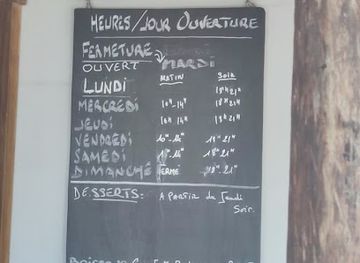 HEURES/JOUR OUVERTURE
FERMETURE MARDI
OUVERT MATIN SOIR
LUNDI 18H 21H
MERCREDI 10H-14H 18H 21H
JEUDI 10H 14H 18H 21H
VENDREDI 10H-14H 18H 21H
SAMEDI 18H 21H
DIMANCHE FERME 18H-21H
DESSERTS: A PARTIR du Jeudi
Soir.